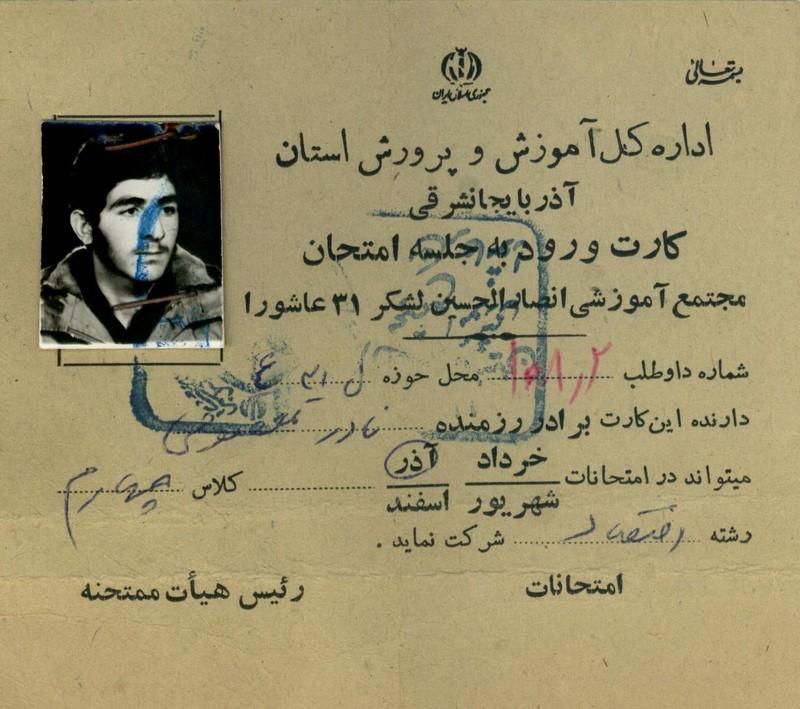 بسمه تعالی
جمهوری اسلامی ایران
اداره کل آموزش و پرورش استان
آذربایجانشرقی
کارت ورود به جلسه امتحان
مجتمع آموزشی انصار الحسین لشکر ۳۱ عاشورا
شماره داوطلب محل حوزه ل ۳۱ ع
دارنده این کارت برادر رزمنده نادر
میتواند در امتحانات خرداد آذر شهریور اسفند کلاس چهارم
رشته اقتصاد شرکت نماید .
امتحانات رئیس هیأت ممتحنه